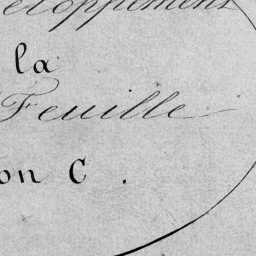 eloppement
la
Feuille
on C.